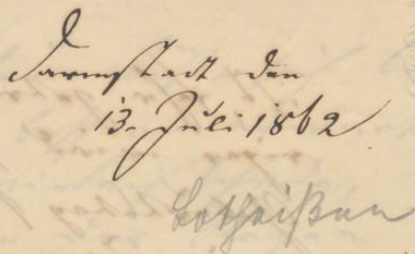 Darmstadt den
13. Juli 1862
Lotheißen